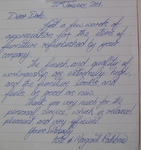 Dear Dad,
Just a few words of
appreciation for the item of
furniture refurbished by your
company.
The finish and quality of
workmanship are extremely high,
and the furniture looks and
feels as good as new.
Thank you very much for the
personal service, which is relaxed
pleasant and very efficient.
Yours Sincerely
& Margaret